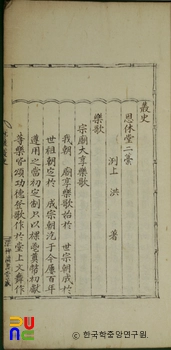 叢史
恩休堂二纂
洌上 洪 著
樂歌
宗廟大享樂歌
我朝 廟享樂歌始於 世宗朝成於
世祖朝定於 成宗朝迄于今屢百年
遵用之當初定制只以祼奠幣初獻
等樂皆頌功德登歌作於堂上文舞作
한국학중앙연구원